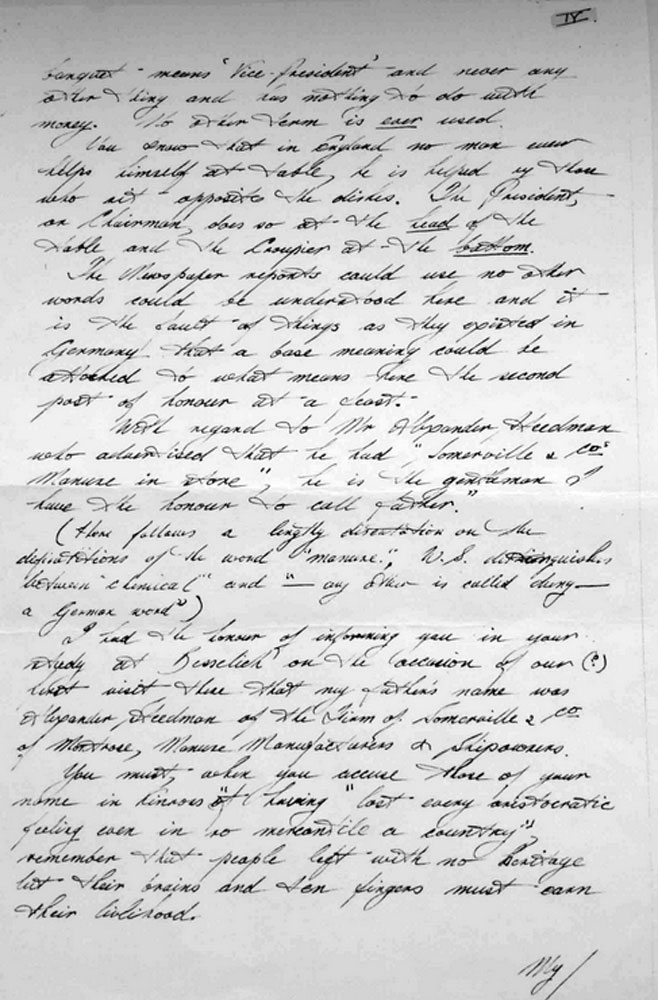 IV.
banquet - means 'Vice-President' - and never any
other thing and has nothing to do with
money. No other term is ever used.
You know that in England no man ever
helps himself at table, he is helped by those
who sit opposite the dishes. The President,
or Chairman, does so at the head of the
table and the Croupier at the bottom.
The Newspaper reports could use no other
words could be understood here and it
is the fault of things as they existed in
Germany that a base meaning could be
attached to what means here the second
post of honour at a feast.
With regard to Mr Alexander Steedman
who advertised that he had, "Somerville & Co:
Manure in store", he is the gentleman I
have the honour to call father."
(there follows a lengthy disertation on the
definitions of the word "manure", W.S. distinguishes
between "chemical" and "— any other is called dung—
a German word")
I had the honour of informing you in your
study at Besselich on the occasion of our (?)
last visit there that my father's name was
Alexander Steedman of the Firm of Somerville & Co
of Montrose, Manure Manufacturers & Shipowners.
You must, when you accuse those of your
name in Kinross "of having "lost every aristocratic
feeling even in so mercantile a country",
remember that people left with no heritage
but their brains and ten fingers must earn
their livlihood.
My/